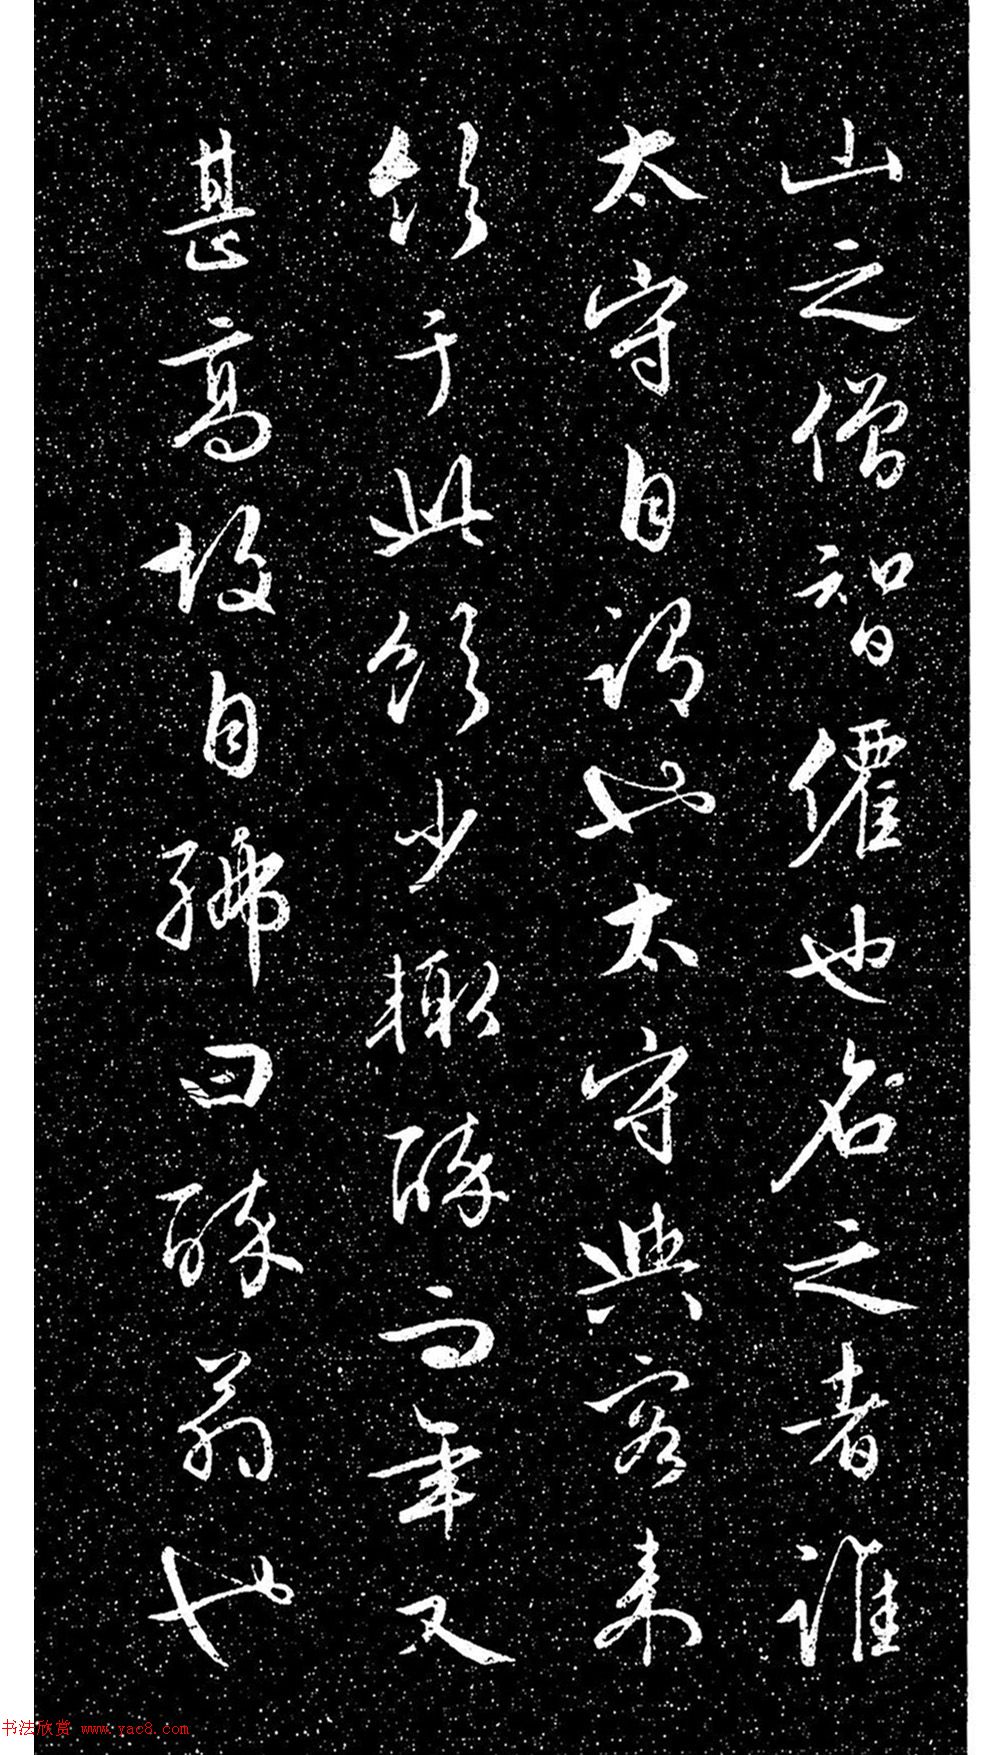 山之僧智僊也名之者誰
太守自謂也太守與客来
飲于此飲少輙醉而年又
甚高故自號曰醉翁也
书法欣赏 www.yac8.com